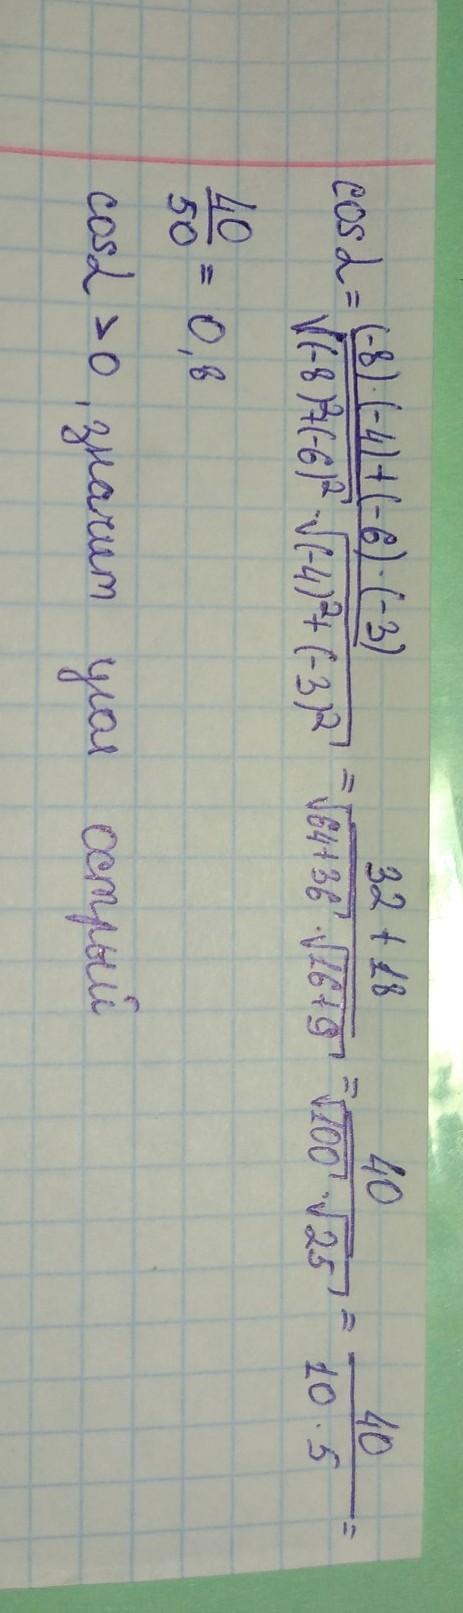 cos α = ((-8)·(-4)+(-6)·(-3))/(√((-8)²+(-6)²)·√((-4)²+(-3)²)) = (32+18)/(√(64+36)·√(16+9)) = 40/(√100·√25) = 40/(10·5) =
40/50 = 0,8
cosα > 0, значит угол острый